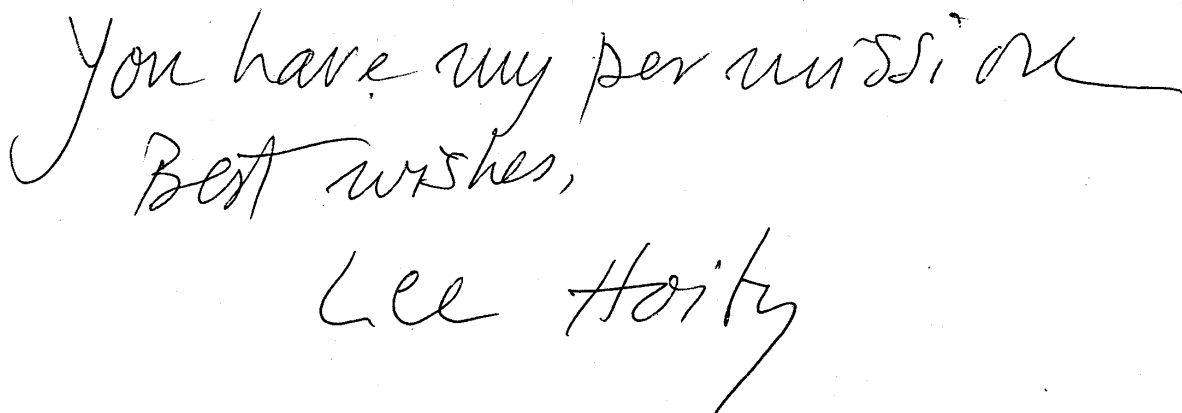 You have my permission
Best wishes,
Lee Hoiby